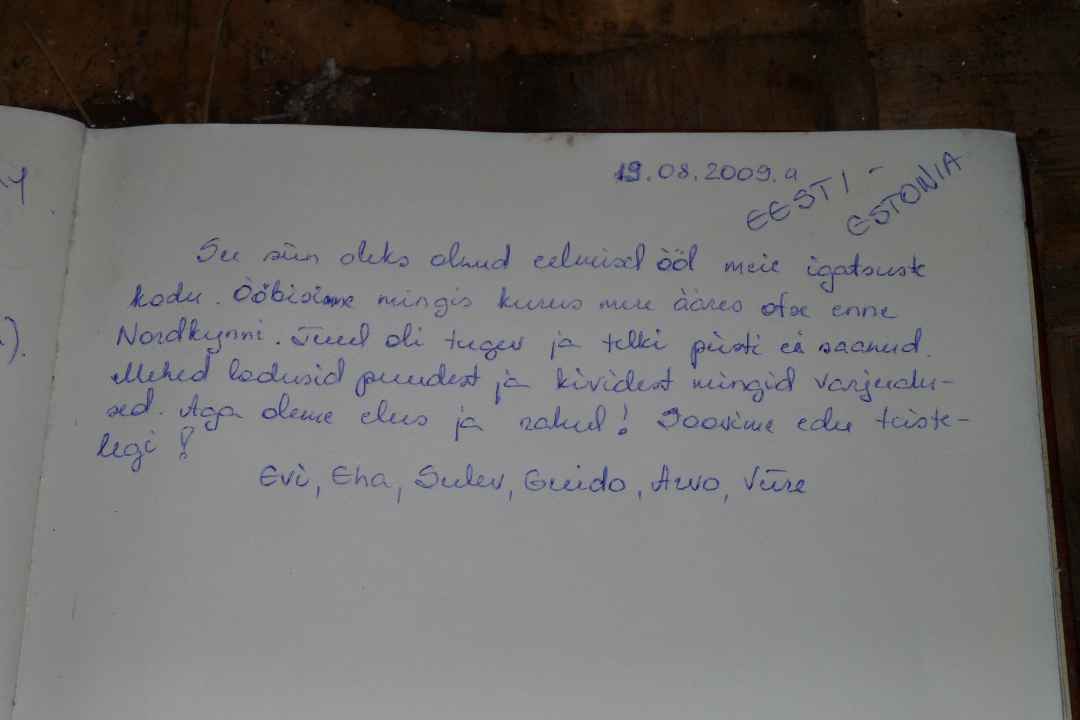 19.08.2009.a
EESTI -
ESTONIA
See siin oleks olnud eelmisel ööl meie igatsuste
kodu. Ööbisime mingis kurus mere ääres otse enne
Nordkynni. Tuul oli tugev ja telki püsti ei saanud.
Mehed ladusid puudest ja kividest mingid varjualu-
sed. Aga oleme elus ja rahul! Soovime edu teiste-
legi!
Evi, Eha, Sulev, Guido, Arvo, Viire